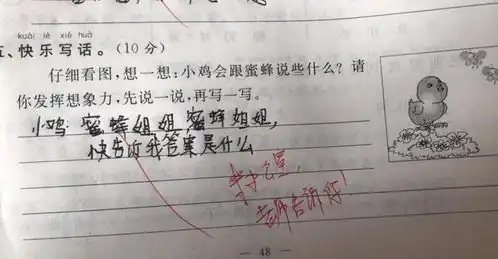 kuài lè xiě huà
五、快乐写话。(10 分)
仔细看图,想一想:小鸡会跟蜜蜂说些什么?请
你发挥想象力,先说一说,再写一写。
小鸡:蜜蜂姐姐,蜜蜂姐姐,
快告诉我答案是什么
老师告诉你!
— 48 —